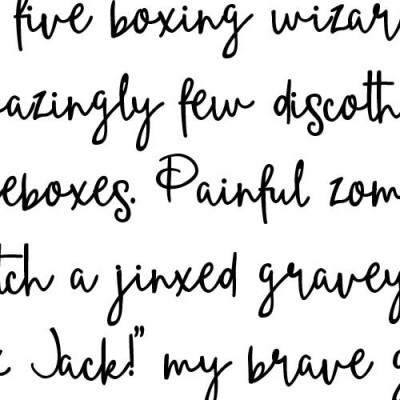 five boxing wizar
azingly few discoth
eboxes. Painful zom
tch a jinxed gravey
Jack!" my brave g